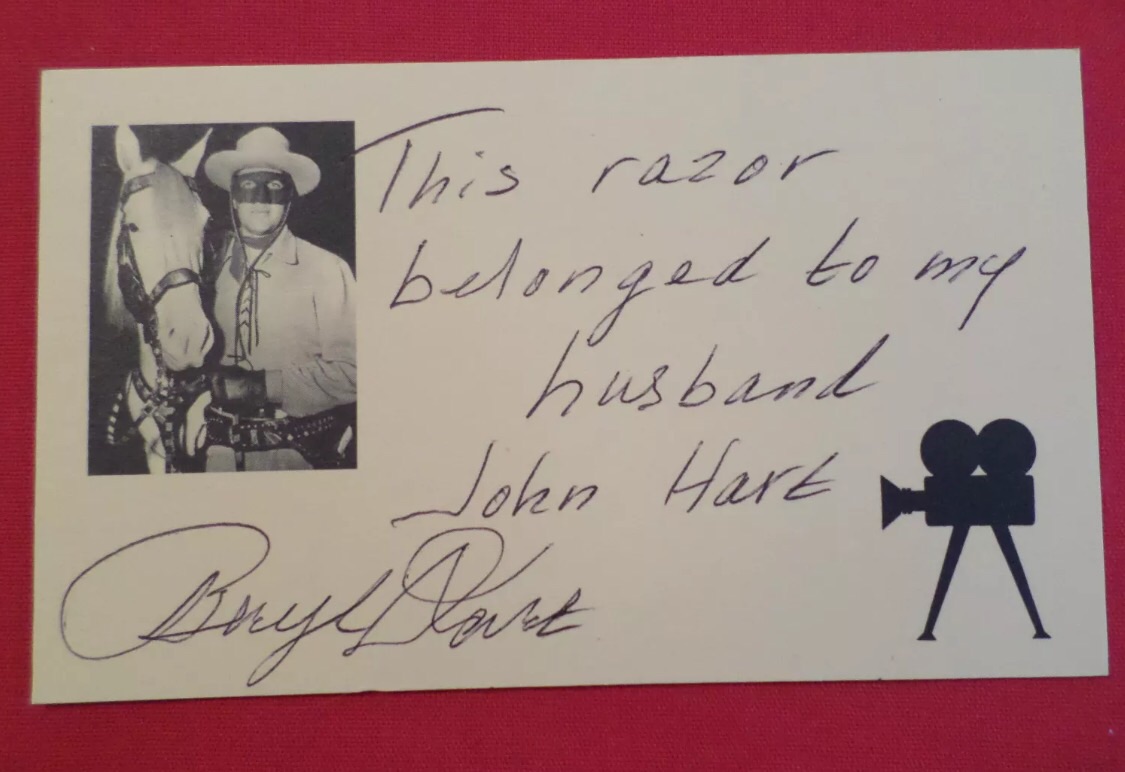 This razor
belonged to my
husband
John Hart
Beryl Hart